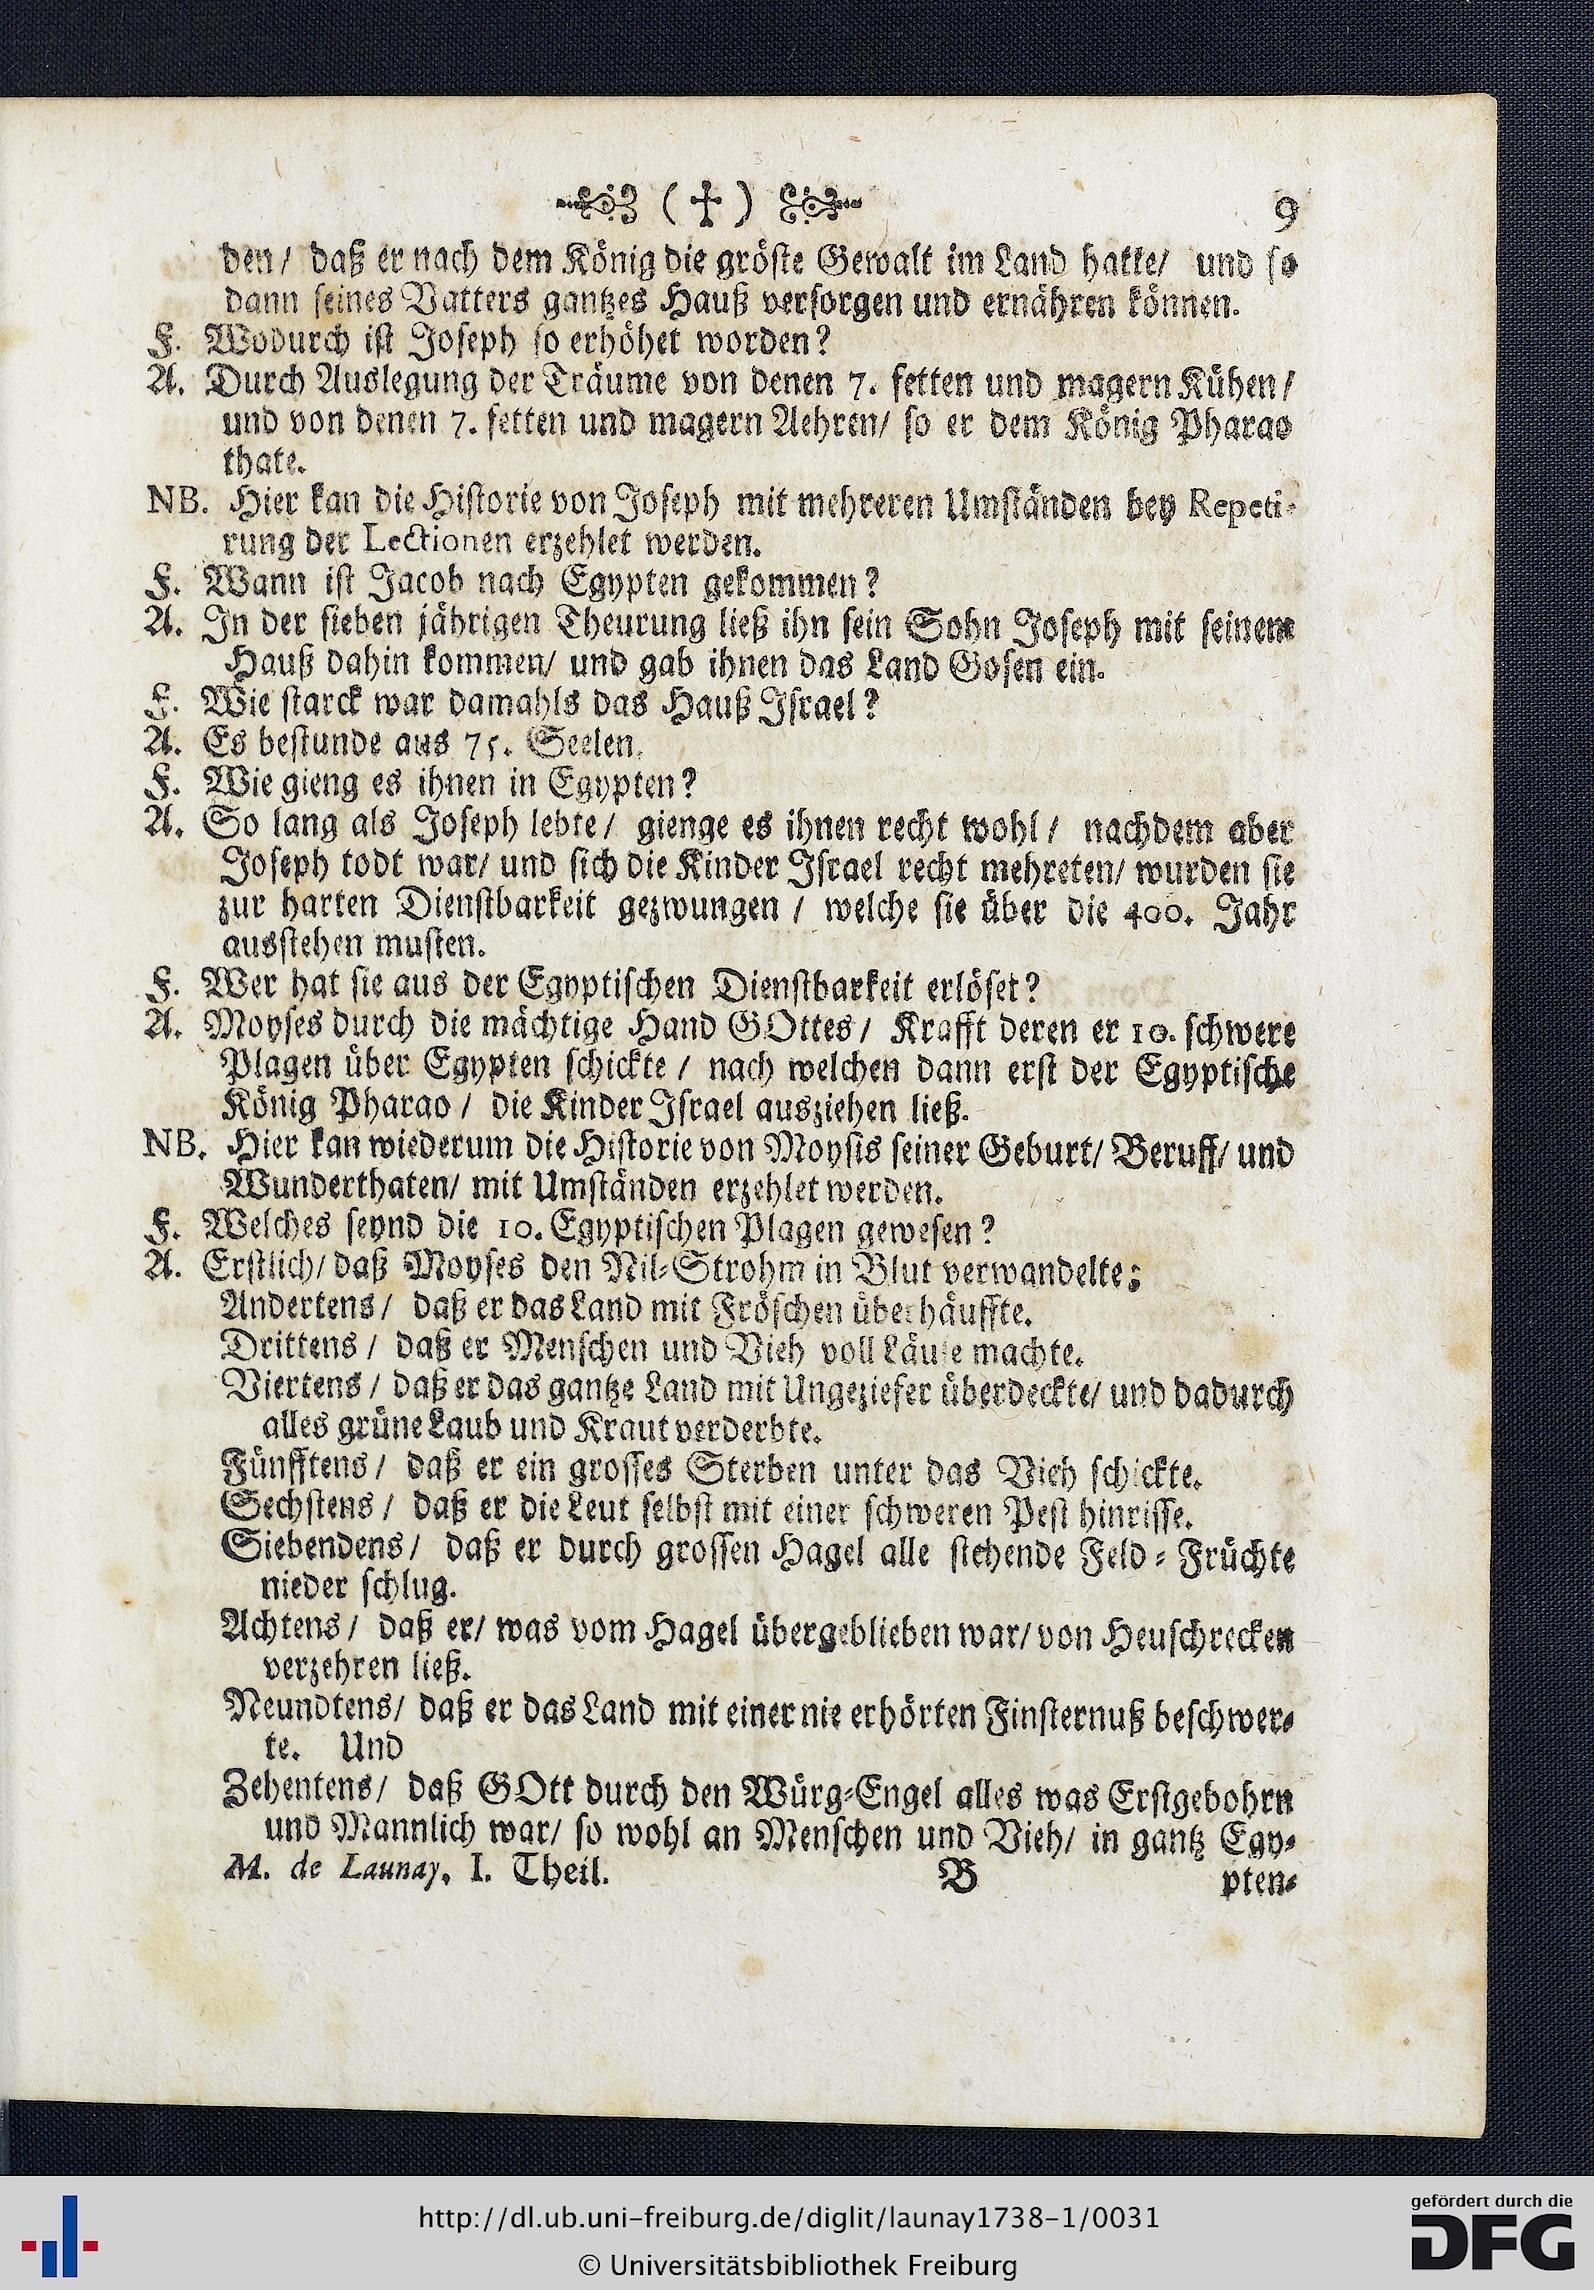 ( † ) 9
den/ daß er nach dem König die gröste Gewalt im Land hatte/ und so
dann seines Vatters gantzes Hauß versorgen und ernähren können.
F. Wodurch ist Joseph so erhöhet worden?
A. Durch Auslegung der Träume von denen 7. fetten und magern Kühen/
und von denen 7. fetten und magern Aehren/ so er dem König Pharao
thate.
NB. Hier kan die Historie von Joseph mit mehreren Umständen bey Repeti-
rung der Lectionen erzehlet werden.
F. Wann ist Jacob nach Egypten gekommen?
A. In der sieben jährigen Theurung ließ ihn sein Sohn Joseph mit seinem
Hauß dahin kommen/ und gab ihnen das Land Gosen ein.
F. Wie starck war damahls das Hauß Israel?
A. Es bestunde aus 75. Seelen.
F. Wie gieng es ihnen in Egypten?
A. So lang als Joseph lebte/ gienge es ihnen recht wohl/ nachdem aber
Joseph todt war/ und sich die Kinder Israel recht mehreten/ wurden sie
zur harten Dienstbarkeit gezwungen/ welche sie über die 400. Jahr
ausstehen musten.
F. Wer hat sie aus der Egyptischen Dienstbarkeit erlöset?
A. Moyses durch die mächtige Hand GOttes/ Krafft deren er 10. schwere
Plagen über Egypten schickte/ nach welchen dann erst der Egyptische
König Pharao/ die Kinder Israel ausziehen ließ.
NB. Hier kan wiederum die Historie von Moysis seiner Geburt/ Beruff/ und
Wunderthaten/ mit Umständen erzehlet werden.
F. Welches seynd die 10. Egyptischen Plagen gewesen?
A. Erstlich/ daß Moyses den Nil-Strohm in Blut verwandelte;
Andertens/ daß er das Land mit Fröschen überhäuffte.
Drittens/ daß er Menschen und Vieh voll Läuse machte.
Viertens/ daß er das gantze Land mit Ungeziefer überdeckte/ und dadurch
alles grüne Laub und Kraut verderbte.
Fünfftens/ daß er ein grosses Sterben unter das Vieh schickte.
Sechstens/ daß er die Leut selbst mit einer schweren Pest hinrisse.
Siebendens/ daß er durch grossen Hagel alle stehende Feld-Früchte
nieder schlug.
Achtens/ daß er/ was vom Hagel übergeblieben war/ von Heuschrecken
verzehren ließ.
Neundtens/ daß er das Land mit einer nie erhörten Finsternuß beschwer-
te. Und
Zehentens/ daß GOtt durch den Würg-Engel alles was Erstgebohrn
und Mannlich war/ so wohl an Menschen und Vieh/ in gantz Egy-
M. de Launay, I. Theil. B pten-
http://dl.ub.uni-freiburg.de/diglit/launay1738-1/0031
© Universitätsbibliothek Freiburg
gefördert durch die
DFG